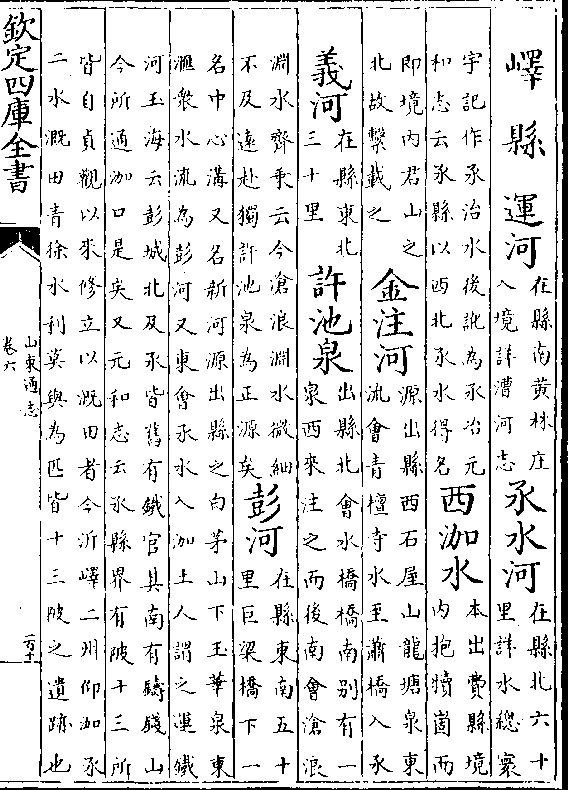 嶧縣 運河 在縣南黄林庄入境詳漕河志 氶水河 在縣北六十里詳水總寰
宇記作承治水後訛為承冶元和志云氶縣以西北氶水得名 西泇水 本出費縣境内抱犢崮而
即境内君山之北故繫載之 金注河 源出縣西石屋山龍塘泉東流會青檀寺水至蕭橋入氶
義河 在縣東北三十里 許池泉 出縣北會水橋橋南别有一泉西來注之而後南會滄浪
淵水齊乗云今滄浪淵水微細不及遠赴獨許池泉為正源矣 彭河 在縣東南五十里巨梁橋下一
名中心溝又名新河源出縣之白茅山下玉華泉東
滙衆水流為彭河又東會氶水入泇土人謂之運鐵
河玉海云彭城北及氶皆舊有鐵官其南有鑄錢山
今所通泇口是矣又元和志云氶縣界有陂十三所
皆自貞觀以來修立以溉田者今沂嶧二州仰泇氶
二水溉田青徐水利莫與為匹皆十三陂之遺跡也
欽定四庫全書
山東通志
卷六